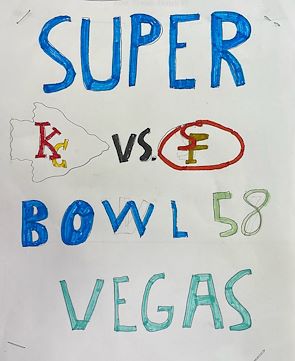 SUPER
KC VS. SF
BOWL 58
VEGAS